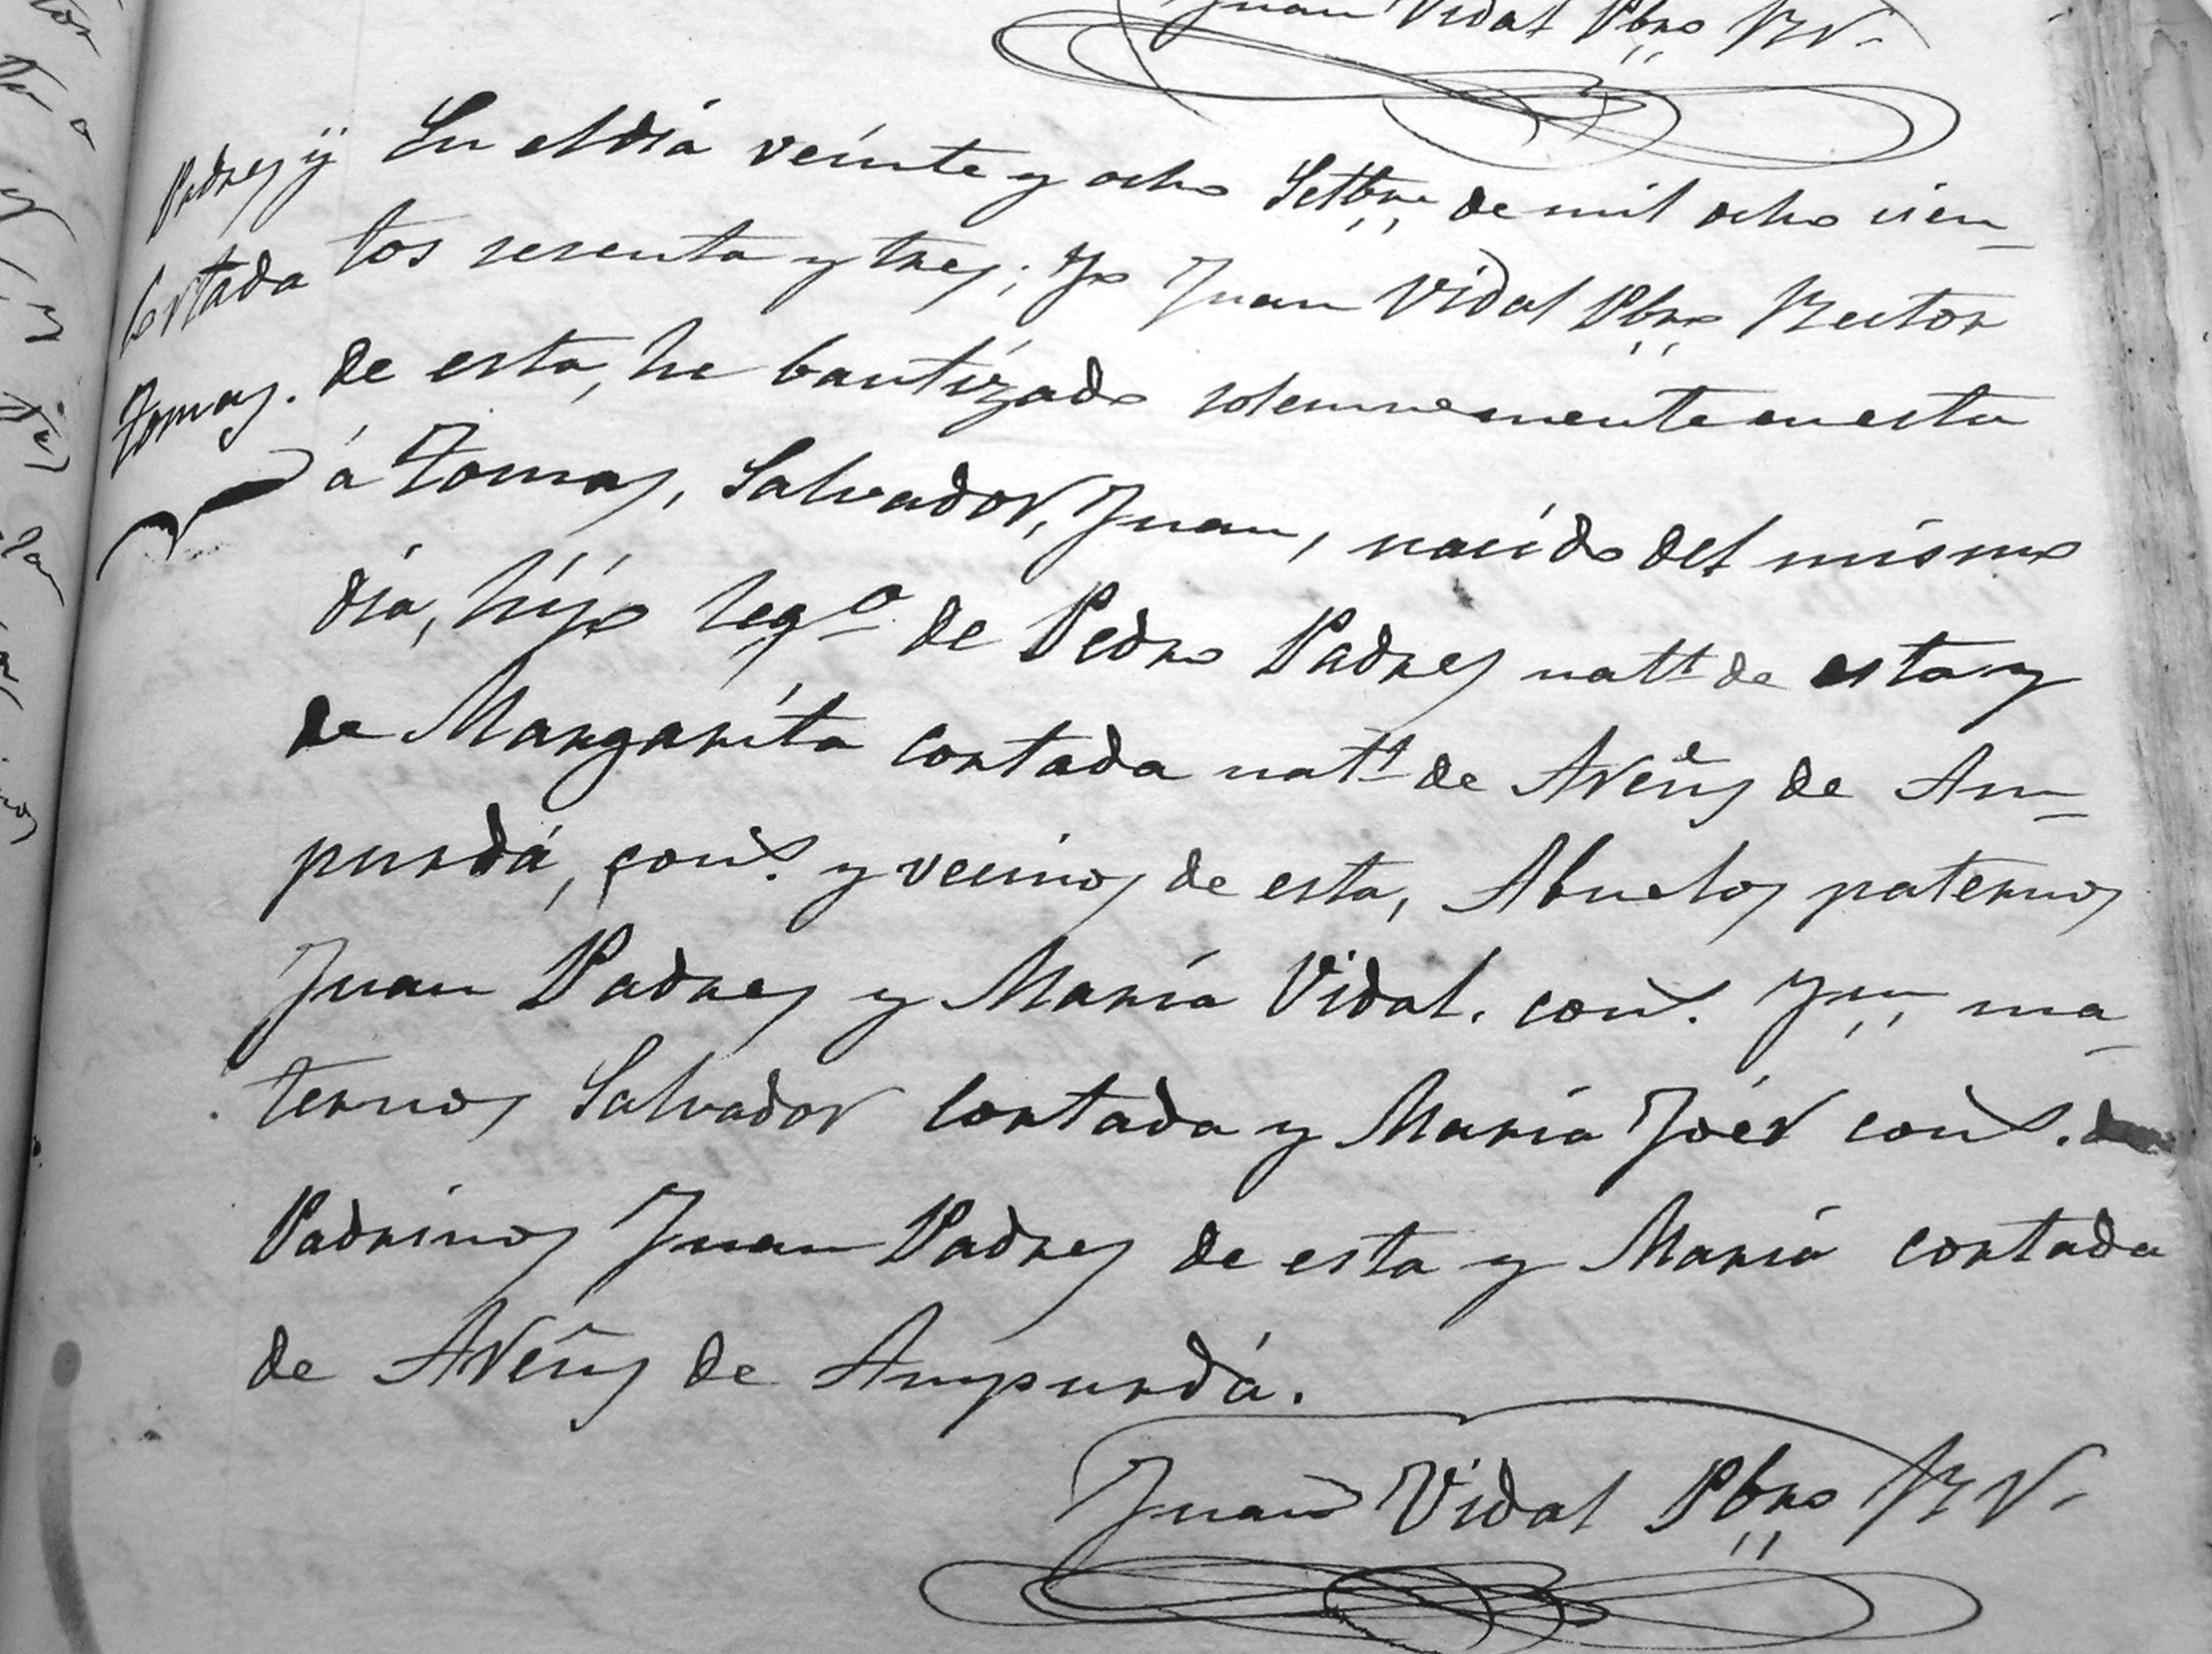 Juan Vidal Pbro R V.
Padres y
Cortada
Tomas.
En el dia veinte y ocho Setbre de mil ocho cien-
tos sesenta y tres; Yo Juan Vidal Pbro Rector
de esta, he bautizado solemnemente en esta
á Tomas, Salvador, Juan, nacido del mismo
dia, hijo legº de Pedro Padres natl de esta y
de Margarita Cortada natl de Aveñs de Am-
purdá, cons. y vecinos de esta, Abuelos paternos
Juan Padres y Maria Vidal. cons. Y ma-
ternos Salvador Cortada y Maria Joér cons.
Padrinos Juan Padres de esta y Maria Cortada
de Aveñs de Ampurdá.
Juan Vidal Pbro R V.